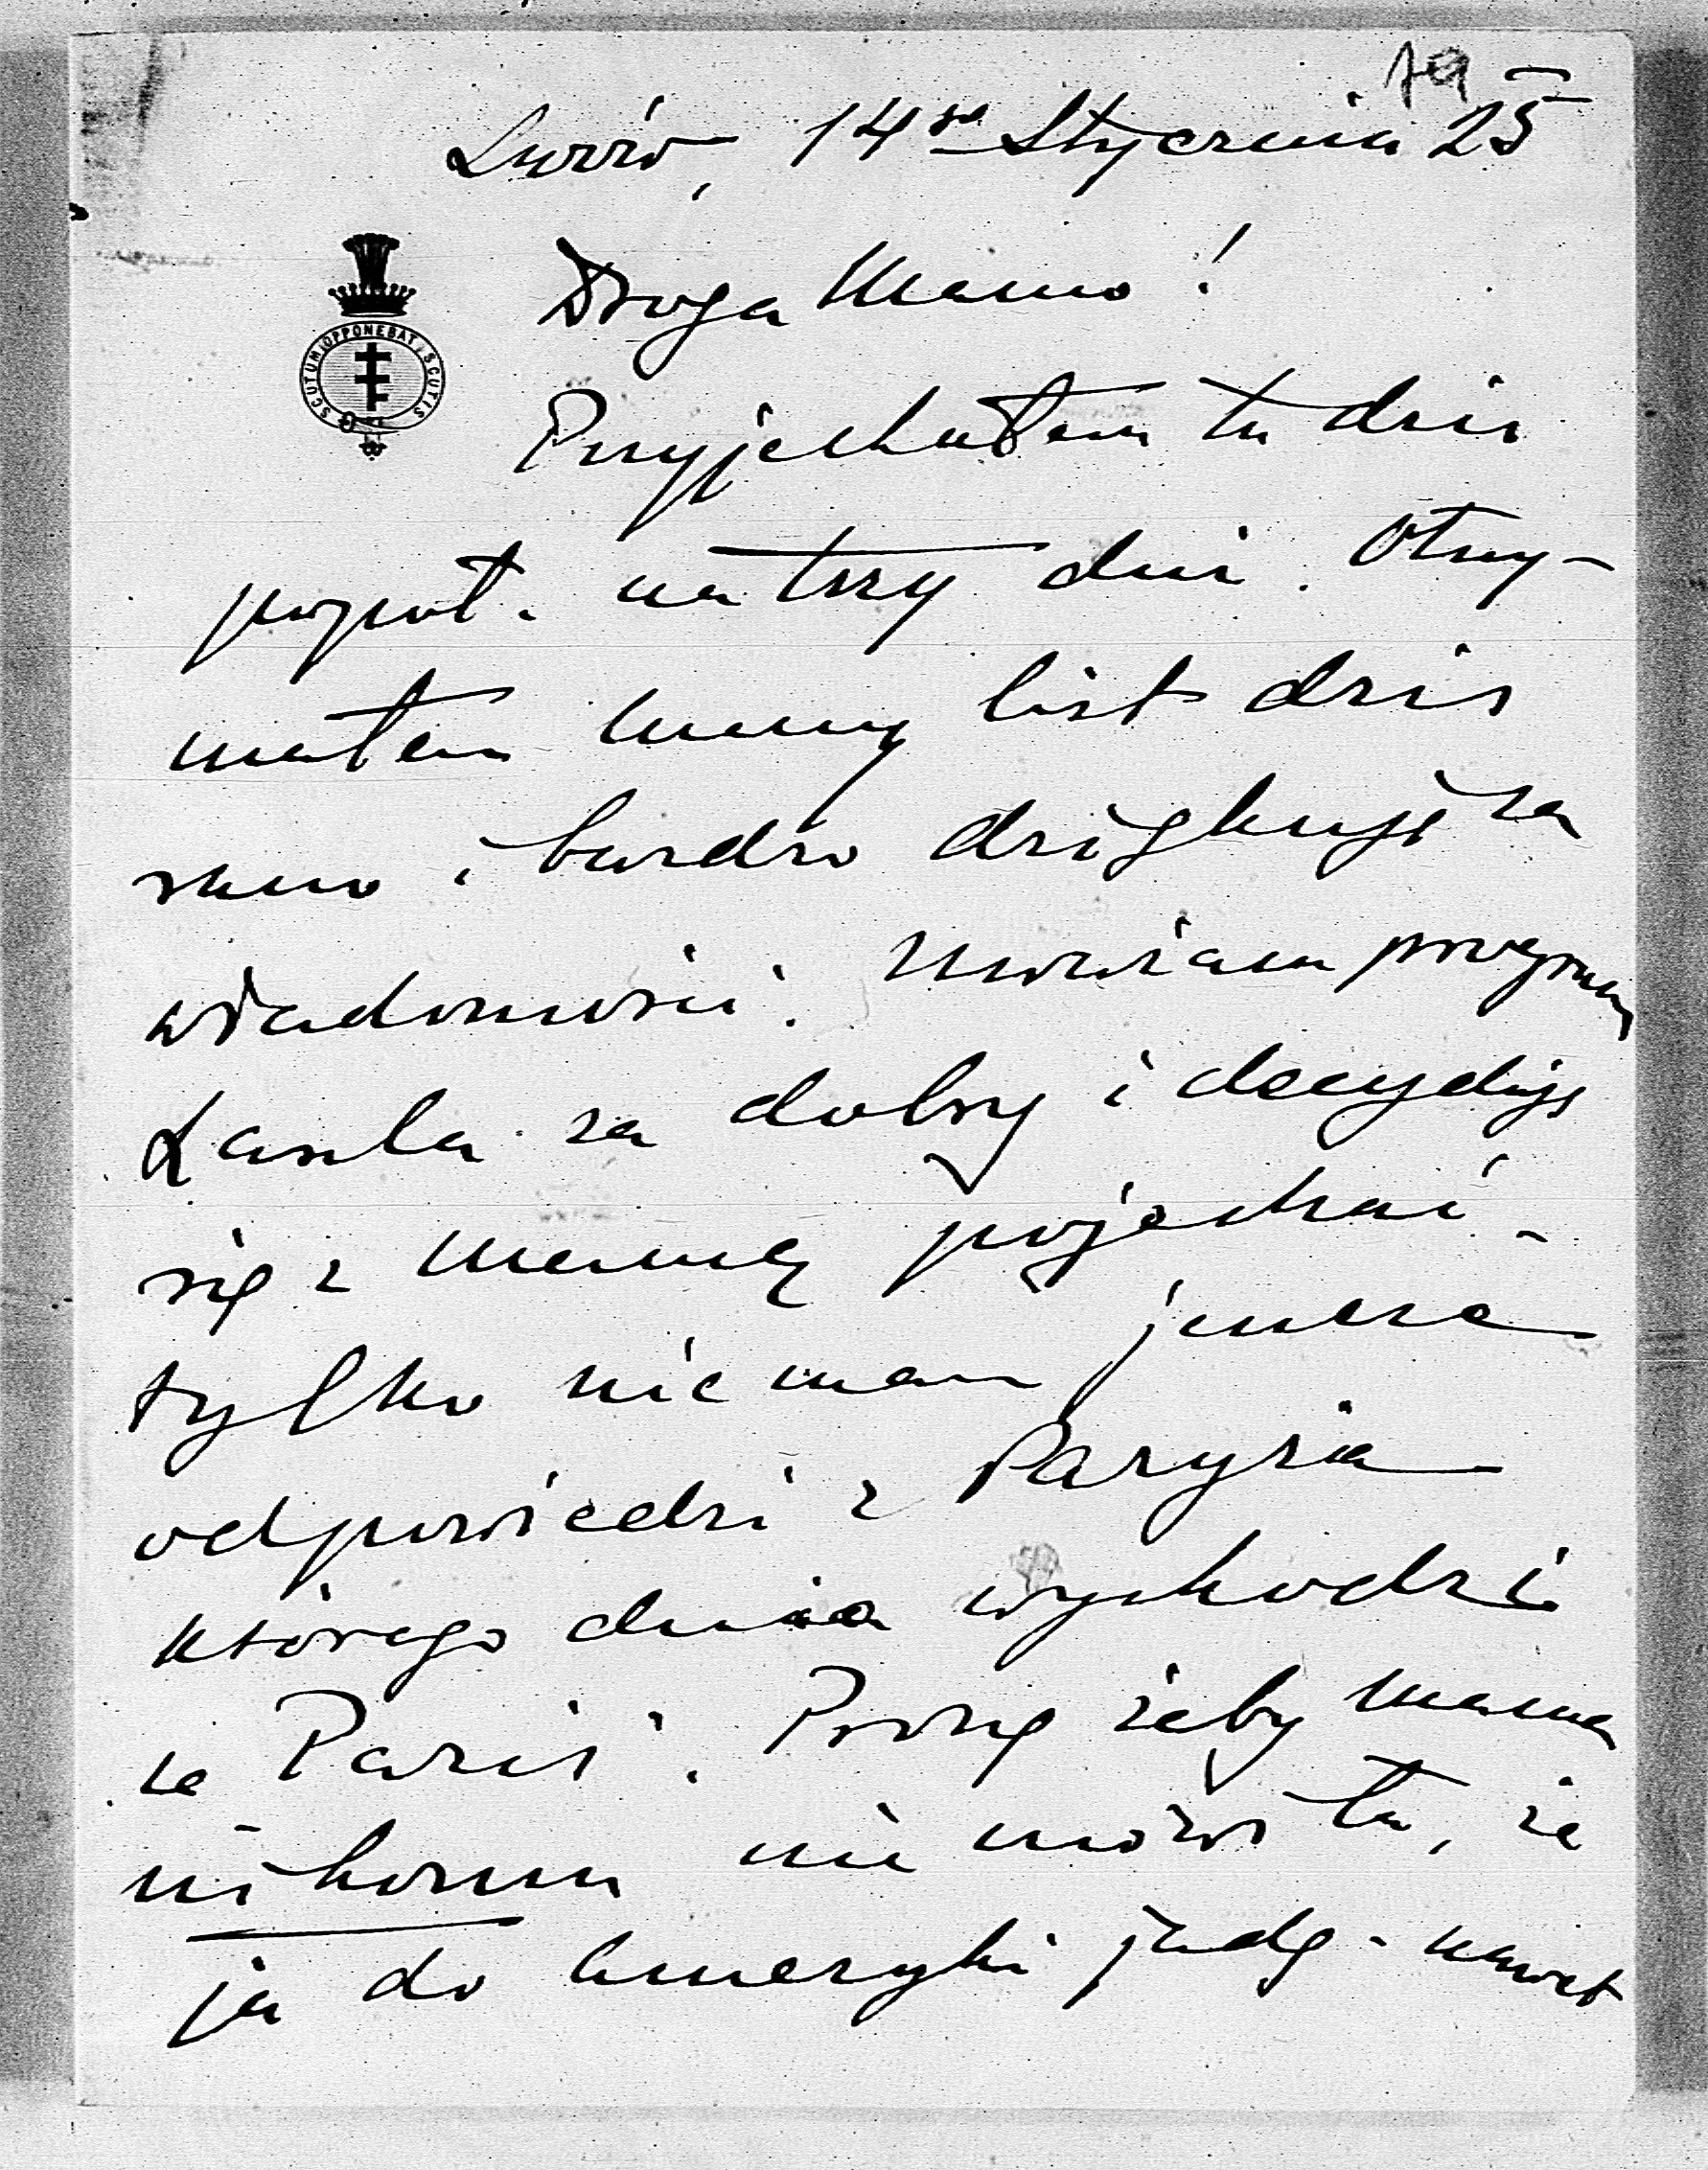 79
Lwów, 14go Stycznia 25
SCUTUM OPPONEBAT SCUTIS
Droga Mamo!
Przyjechałem tu dziś
popoł. na trzy dni. Otrzy-
małem mamy list dziś
rano i bardzo dziękuję za
wiadomości. Uważam program
za dobry i decyduję
się z mamą pojechać -
tylko nie mam jeszcze
odpowiedzi z Paryża
którego dnia wychodzi
Paris. Proszę żeby mama
nikomu nie mówiła, że
ja do Ameryki jadę - nawet